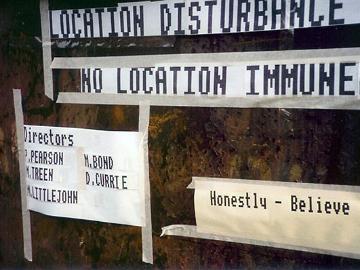 LOCATION DISTURBANCE
NO LOCATION IMMUNE
Directors
P.PEARSON N.BOND
M.TREEN D.CURRIE
M.LITTLEJOHN
Honestly - Believe